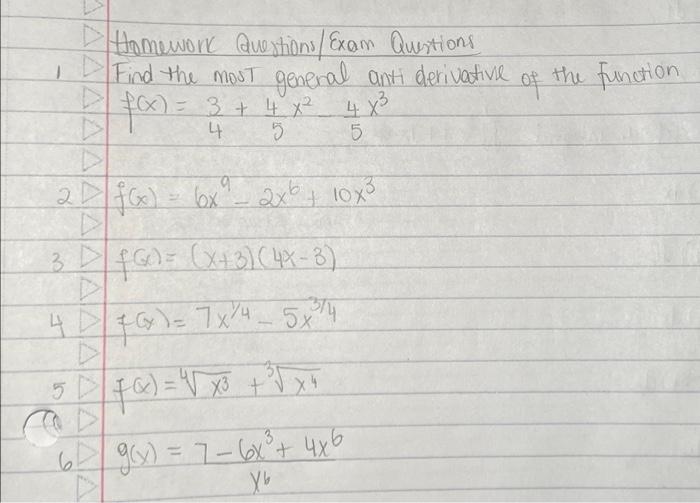 Homework Questions/Exam Questions
1 Find the most general anti derivative of the function
f(x) = 3/4 + 4/5 x² - 4/5 x³
2 f(x) = 6x⁹ - 2x⁶ + 10x³
3 f(x) = (x+3)(4x-3)
4 f(x) = 7x^1/4 - 5x^3/4
5 f(x) = ⁴√x³ + ³√x⁴
6 g(x) = 7 - 6x³ + 4x⁶
x⁶